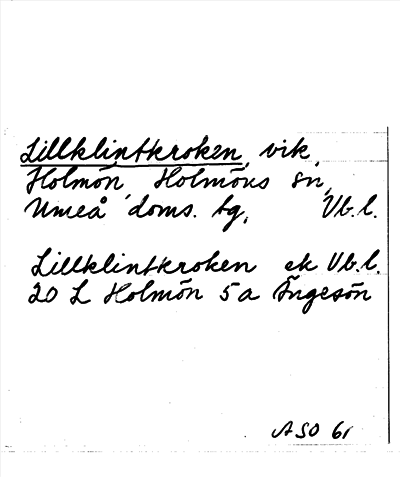 Lillklintkroken, vik,
Holmön, Holmöns sn,
Umeå doms. tg, Vb.l.
Lillklintkroken ek Vb.l.
20 L Holmön 5a Ängesön
ASO 61